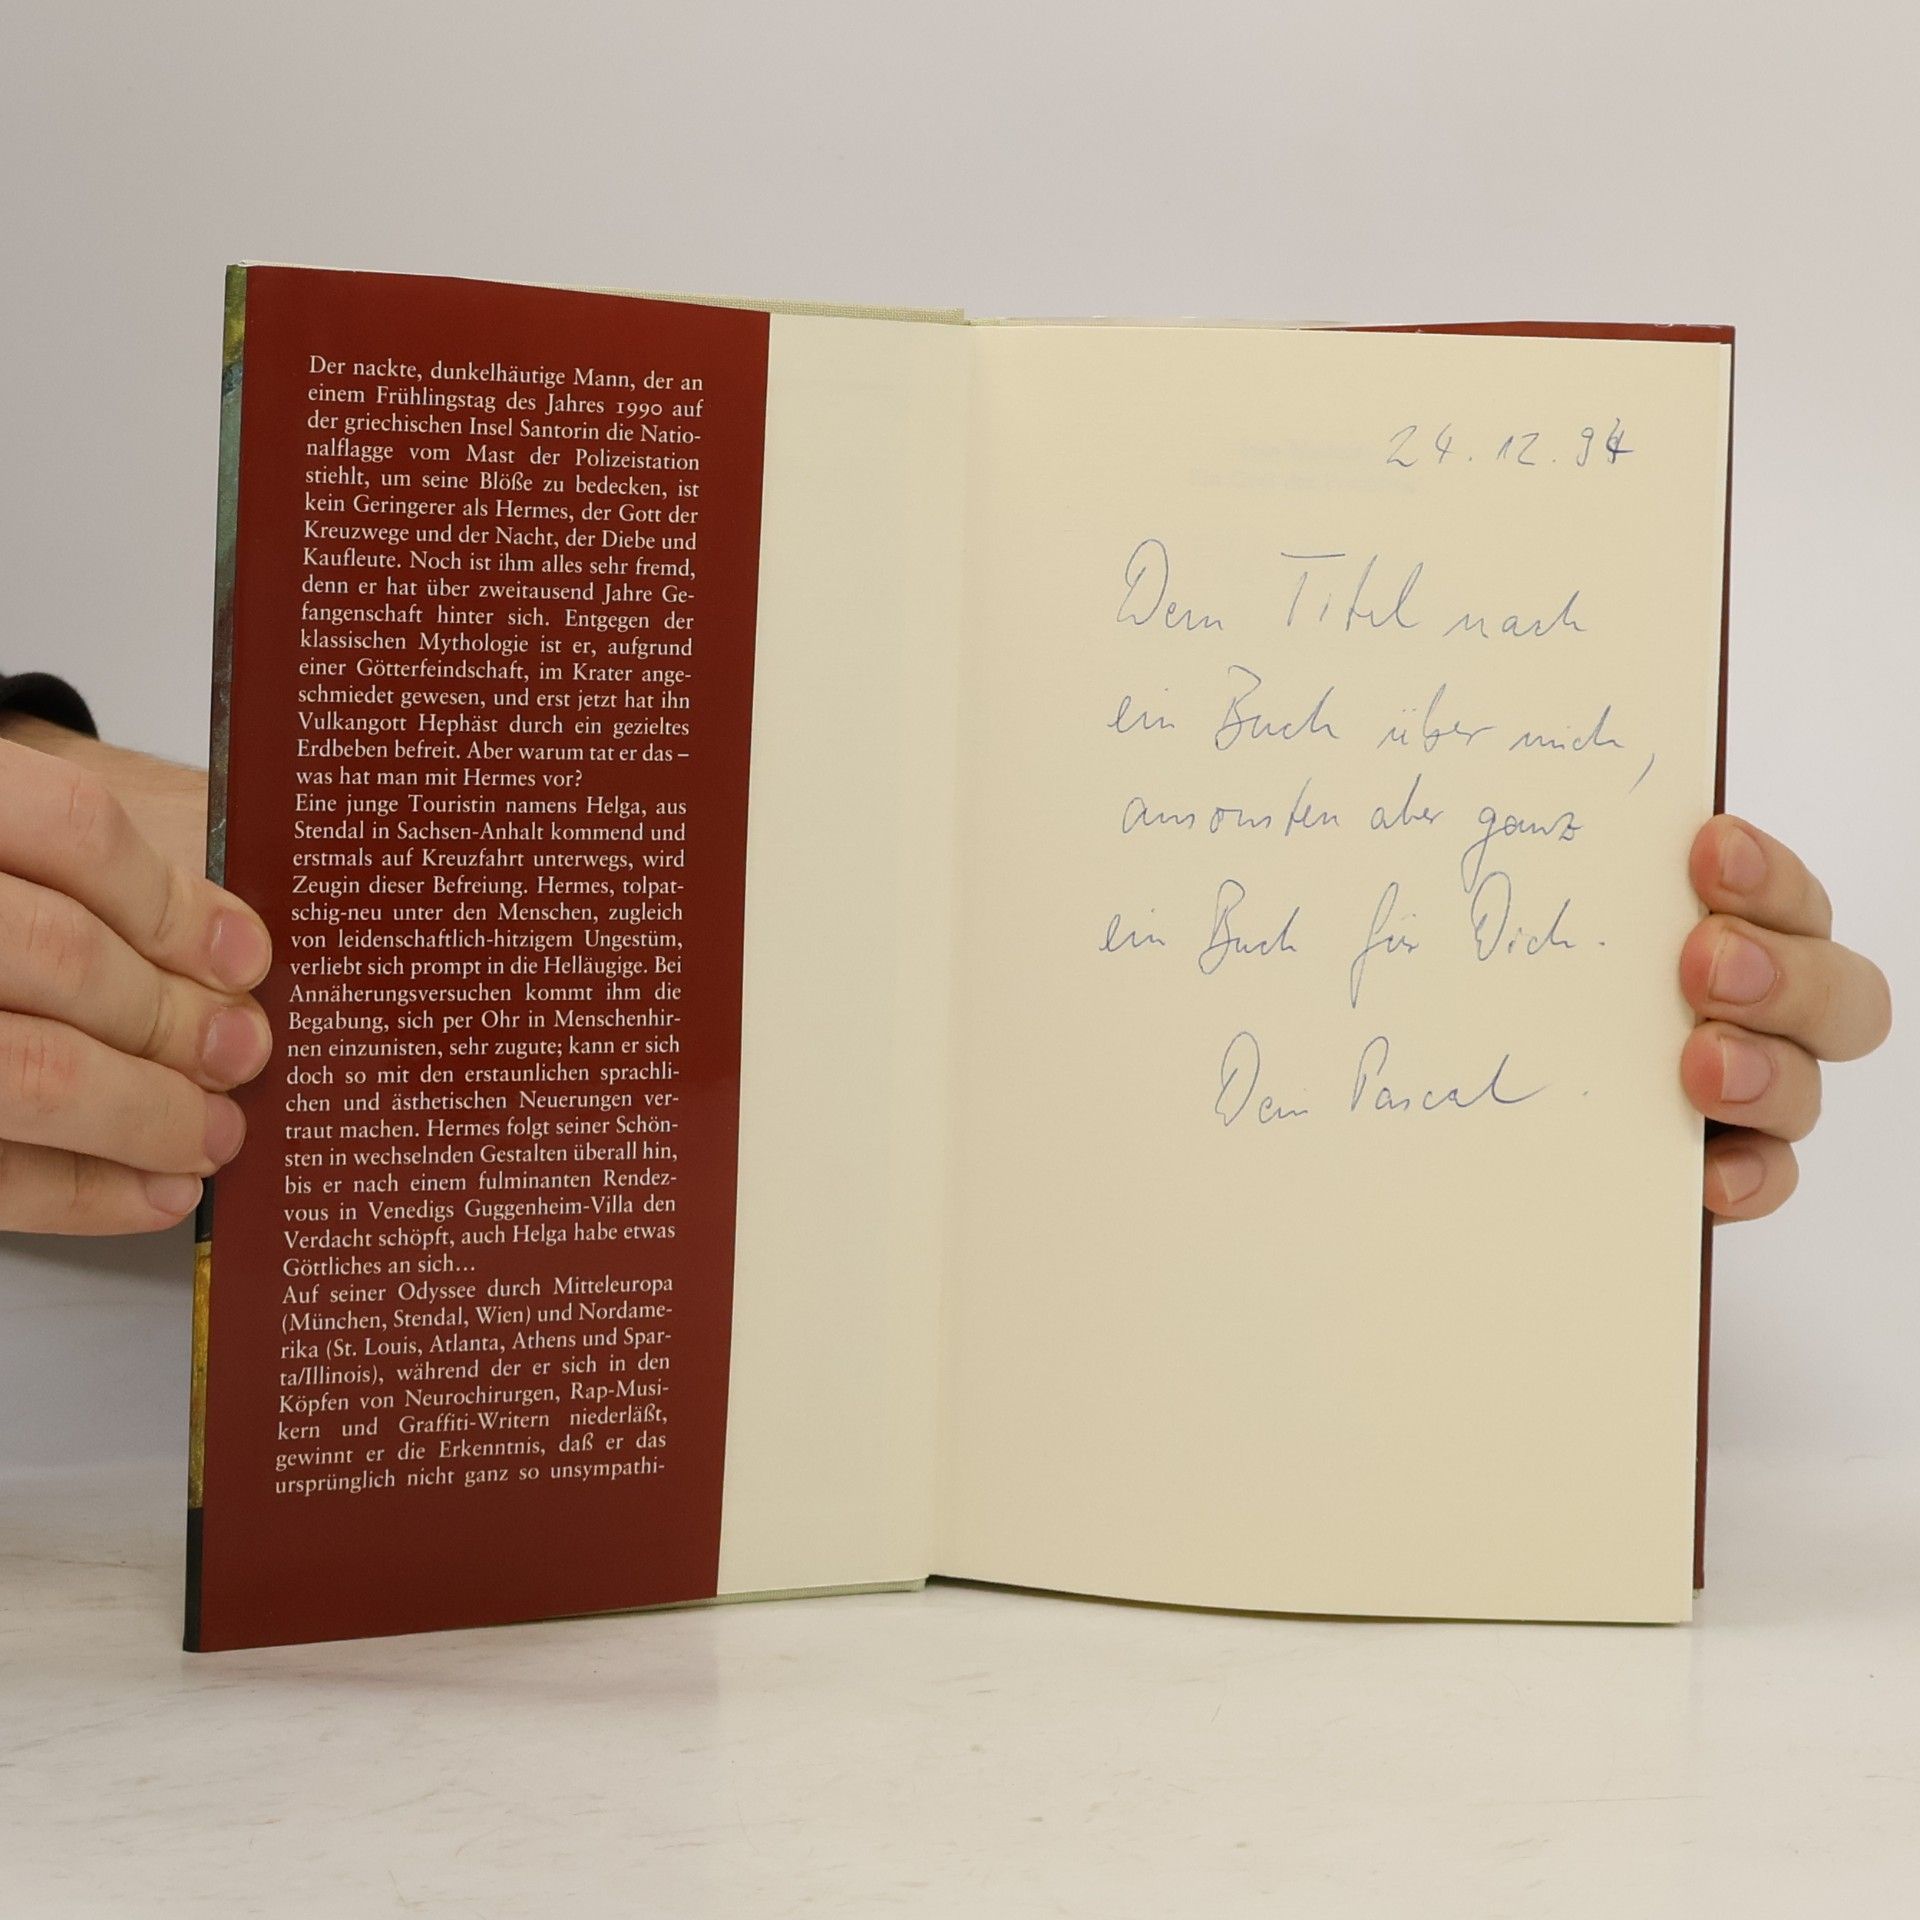 Der nackte, dunkelhäutige Mann, der an
einem Frühlingstag des Jahres 1990 auf
der griechischen Insel Santorin die Natio-
nalflagge vom Mast der Polizeistation
stiehlt, um seine Blöße zu bedecken, ist
kein Geringerer als Hermes, der Gott der
Kreuzwege und der Nacht, der Diebe und
Kaufleute. Noch ist ihm alles sehr fremd,
denn er hat über zweitausend Jahre Ge-
fangenschaft hinter sich. Entgegen der
klassischen Mythologie ist er, aufgrund
einer Götterfeindschaft, im Krater ange-
schmiedet gewesen, und erst jetzt hat ihn
Vulkangott Hephäst durch ein gezieltes
Erdbeben befreit. Aber warum tat er das –
was hat man mit Hermes vor?
Eine junge Touristin namens Helga, aus
Stendal in Sachsen-Anhalt kommend und
erstmals auf Kreuzfahrt unterwegs, wird
Zeugin dieser Befreiung. Hermes, tolpat-
schig-neu unter den Menschen, zugleich
von leidenschaftlich-hitzigem Ungestüm,
verliebt sich prompt in die Helläugige. Bei
Annäherungsversuchen kommt ihm die
Begabung, sich per Ohr in Menschenhir-
nen einzunisten, sehr zugute; kann er sich
doch so mit den erstaunlichen sprachli-
chen und ästhetischen Neuerungen ver-
traut machen. Hermes folgt seiner Schön-
sten in wechselnden Gestalten überall hin,
bis er nach einem fulminanten Rendez-
vous in Venedigs Guggenheim-Villa den
Verdacht schöpft, auch Helga habe etwas
Göttliches an sich...
Auf seiner Odyssee durch Mitteleuropa
(München, Stendal, Wien) und Nordame-
rika (St. Louis, Atlanta, Athens und Spar-
ta/Illinois), während der er sich in den
Köpfen von Neurochirurgen, Rap-Musi-
kern und Graffiti-Writern niederläßt,
gewinnt er die Erkenntnis, daß er das
ursprünglich nicht ganz so unsympathi-
24.12.94
Dem Titel nach
ein Buch über mich,
ansonsten aber ganz
ein Buch für Dich.
Dein Pascal.